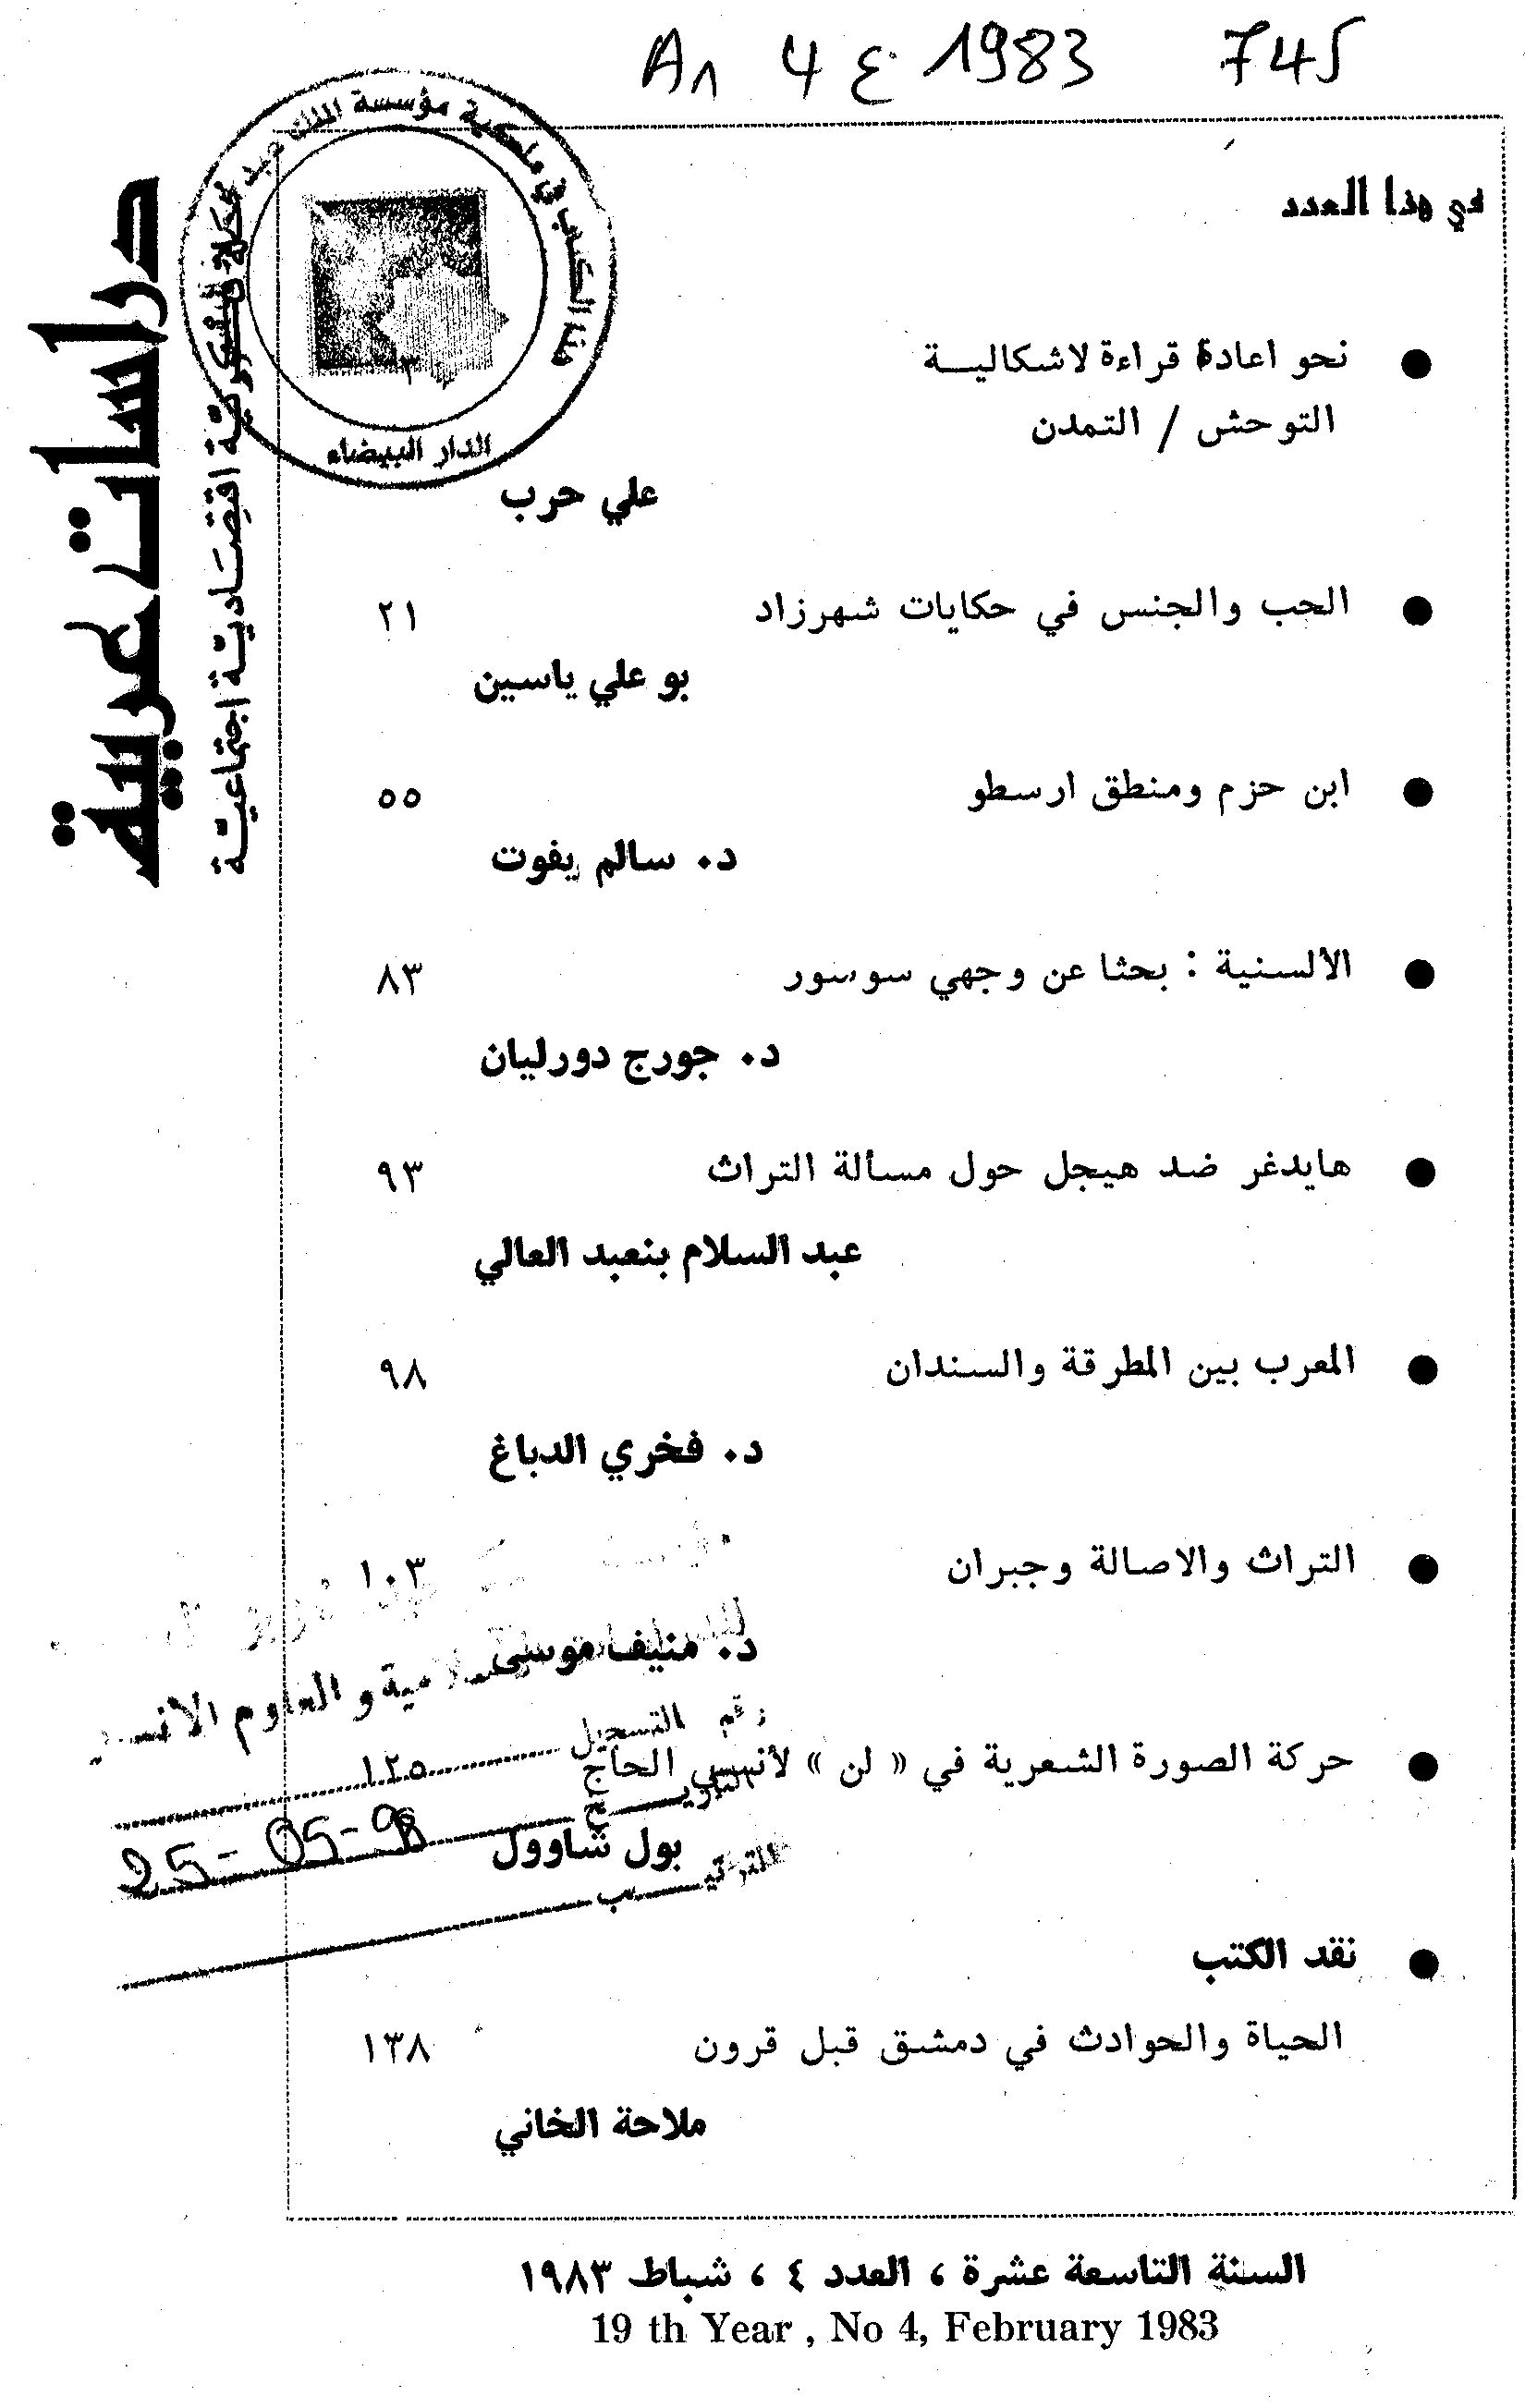 An 4 ع 1983 745
هذا الكتاب في ملكية مؤسسة الملك عبد
الدار البيضاء
دراسات عربية
مجلة فكرية اقتصادية اجتماعية
في هذا العدد
نحو اعادة قراءة لاشكاليــة
التوحش / التمدن
٣
علي حرب
الحب والجنس في حكايات شهرزاد ٢١
بو علي ياسين
ابن حزم ومنطق ارسطو ٥٥
د. سالم يفوت
الألسنية : بحثا عن وجهي سوسور ٨٣
د. جورج دورليان
هايدغر ضد هيجل حول مسألة التراث ٩٣
عبد السلام بنعبد العالي
المعرب بين المطرقة والسندان ٩٨
د. فخري الدباغ
التراث والاصالة وجبران ١٠٣
د. منيف موسى
والعلوم الانسـ
رقم التسجيل
حركة الصورة الشعرية في « لن » لأنسي الحاج ١٢٥
التاريـــخ 25-05-98
بول شاوول
الترتيـــب
نقد الكتب
الحياة والحوادث في دمشق قبل قرون ١٣٨
ملاحة الخاني
السنة التاسعة عشرة ، العدد ٤ ، شباط ١٩٨٣
19 th Year , No 4, February 1983